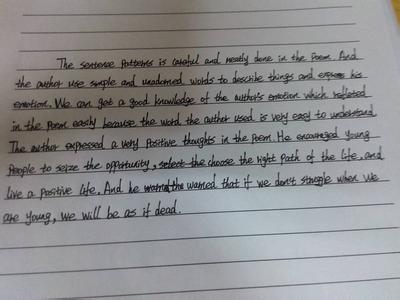 The sentence patterns is careful and neatly done in the Poem. And
the author use simple and unadorned words to describe things and express his
emotion. We can get a good knowledge of the author's emotion which reflected
in the Poem easily because the word the author used is very easy to understand
The author expressed a very positive thoughts in the Poem. He encouraged young
People to seize the opportunity, select the choose the right path of the life, and
live a positive life. And he warned that if we don't struggle when we
are young, we will be as if dead.